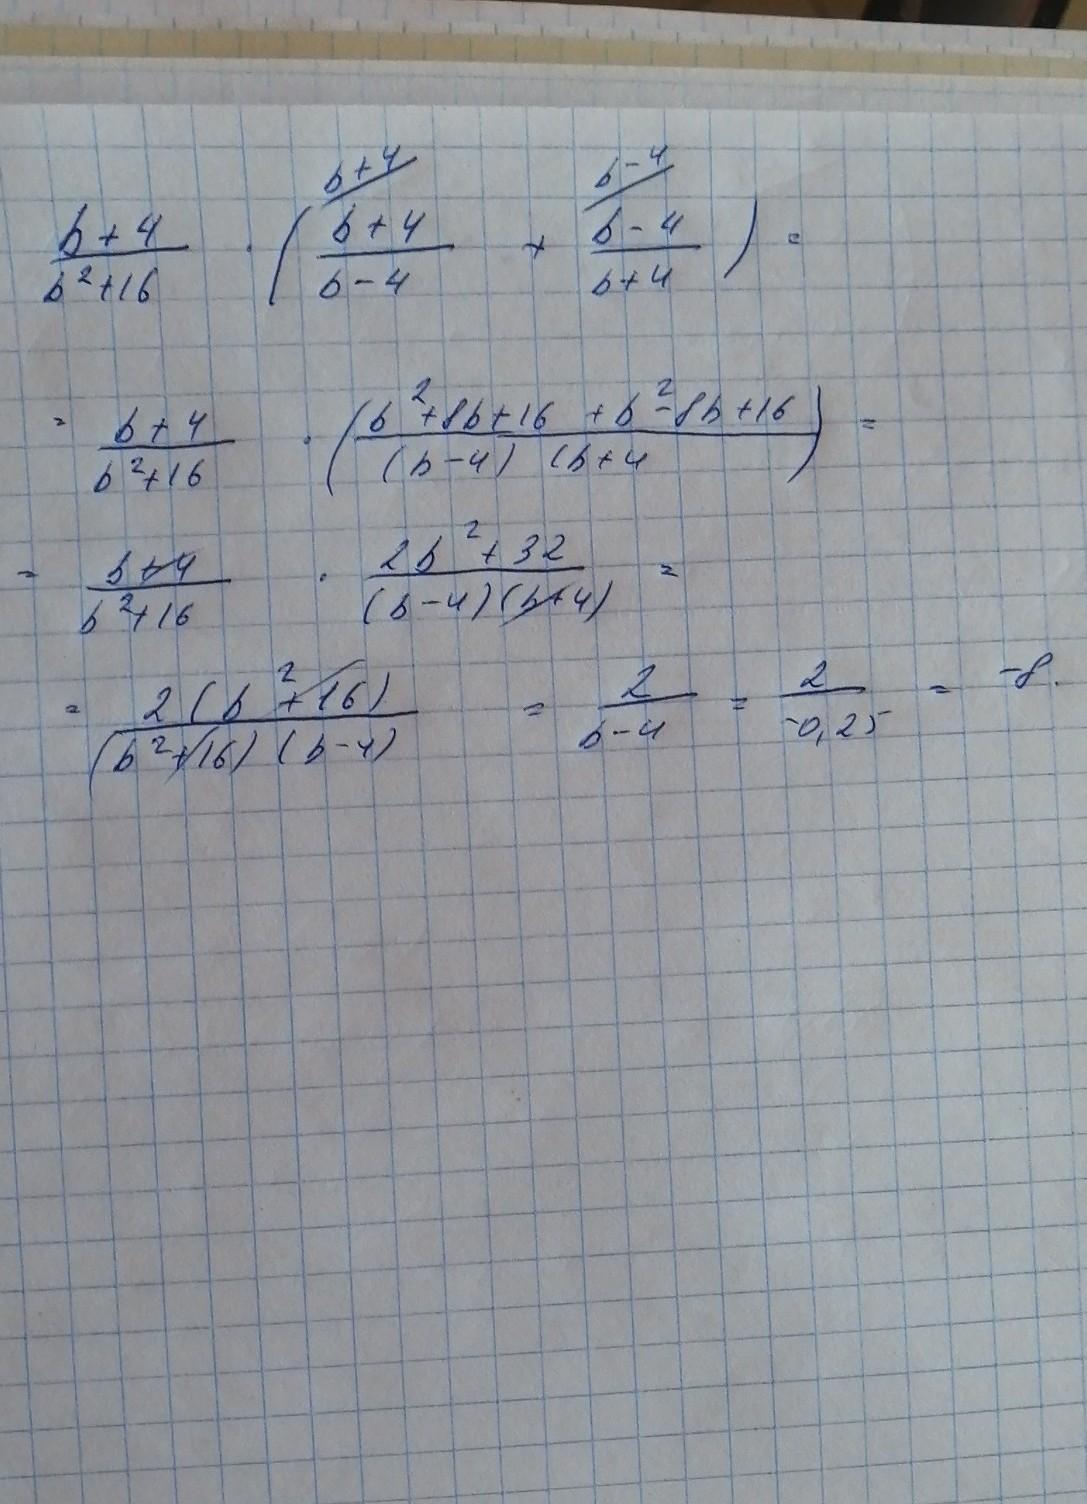 b+4/b²+16 · (b+4/b-4 ^{b+4/} + b-4/b+4 ^{b-4/}) =
= b+4/b²+16 · (b²+8b+16 + b²-8b+16/(b-4) (b+4) =
= b+4/b²+16 · 2b²+32/(b-4)(b+4) =
= 2(b²+16)/(b²+16)(b-4) = 2/b-4 = 2/-0,25 = -8.